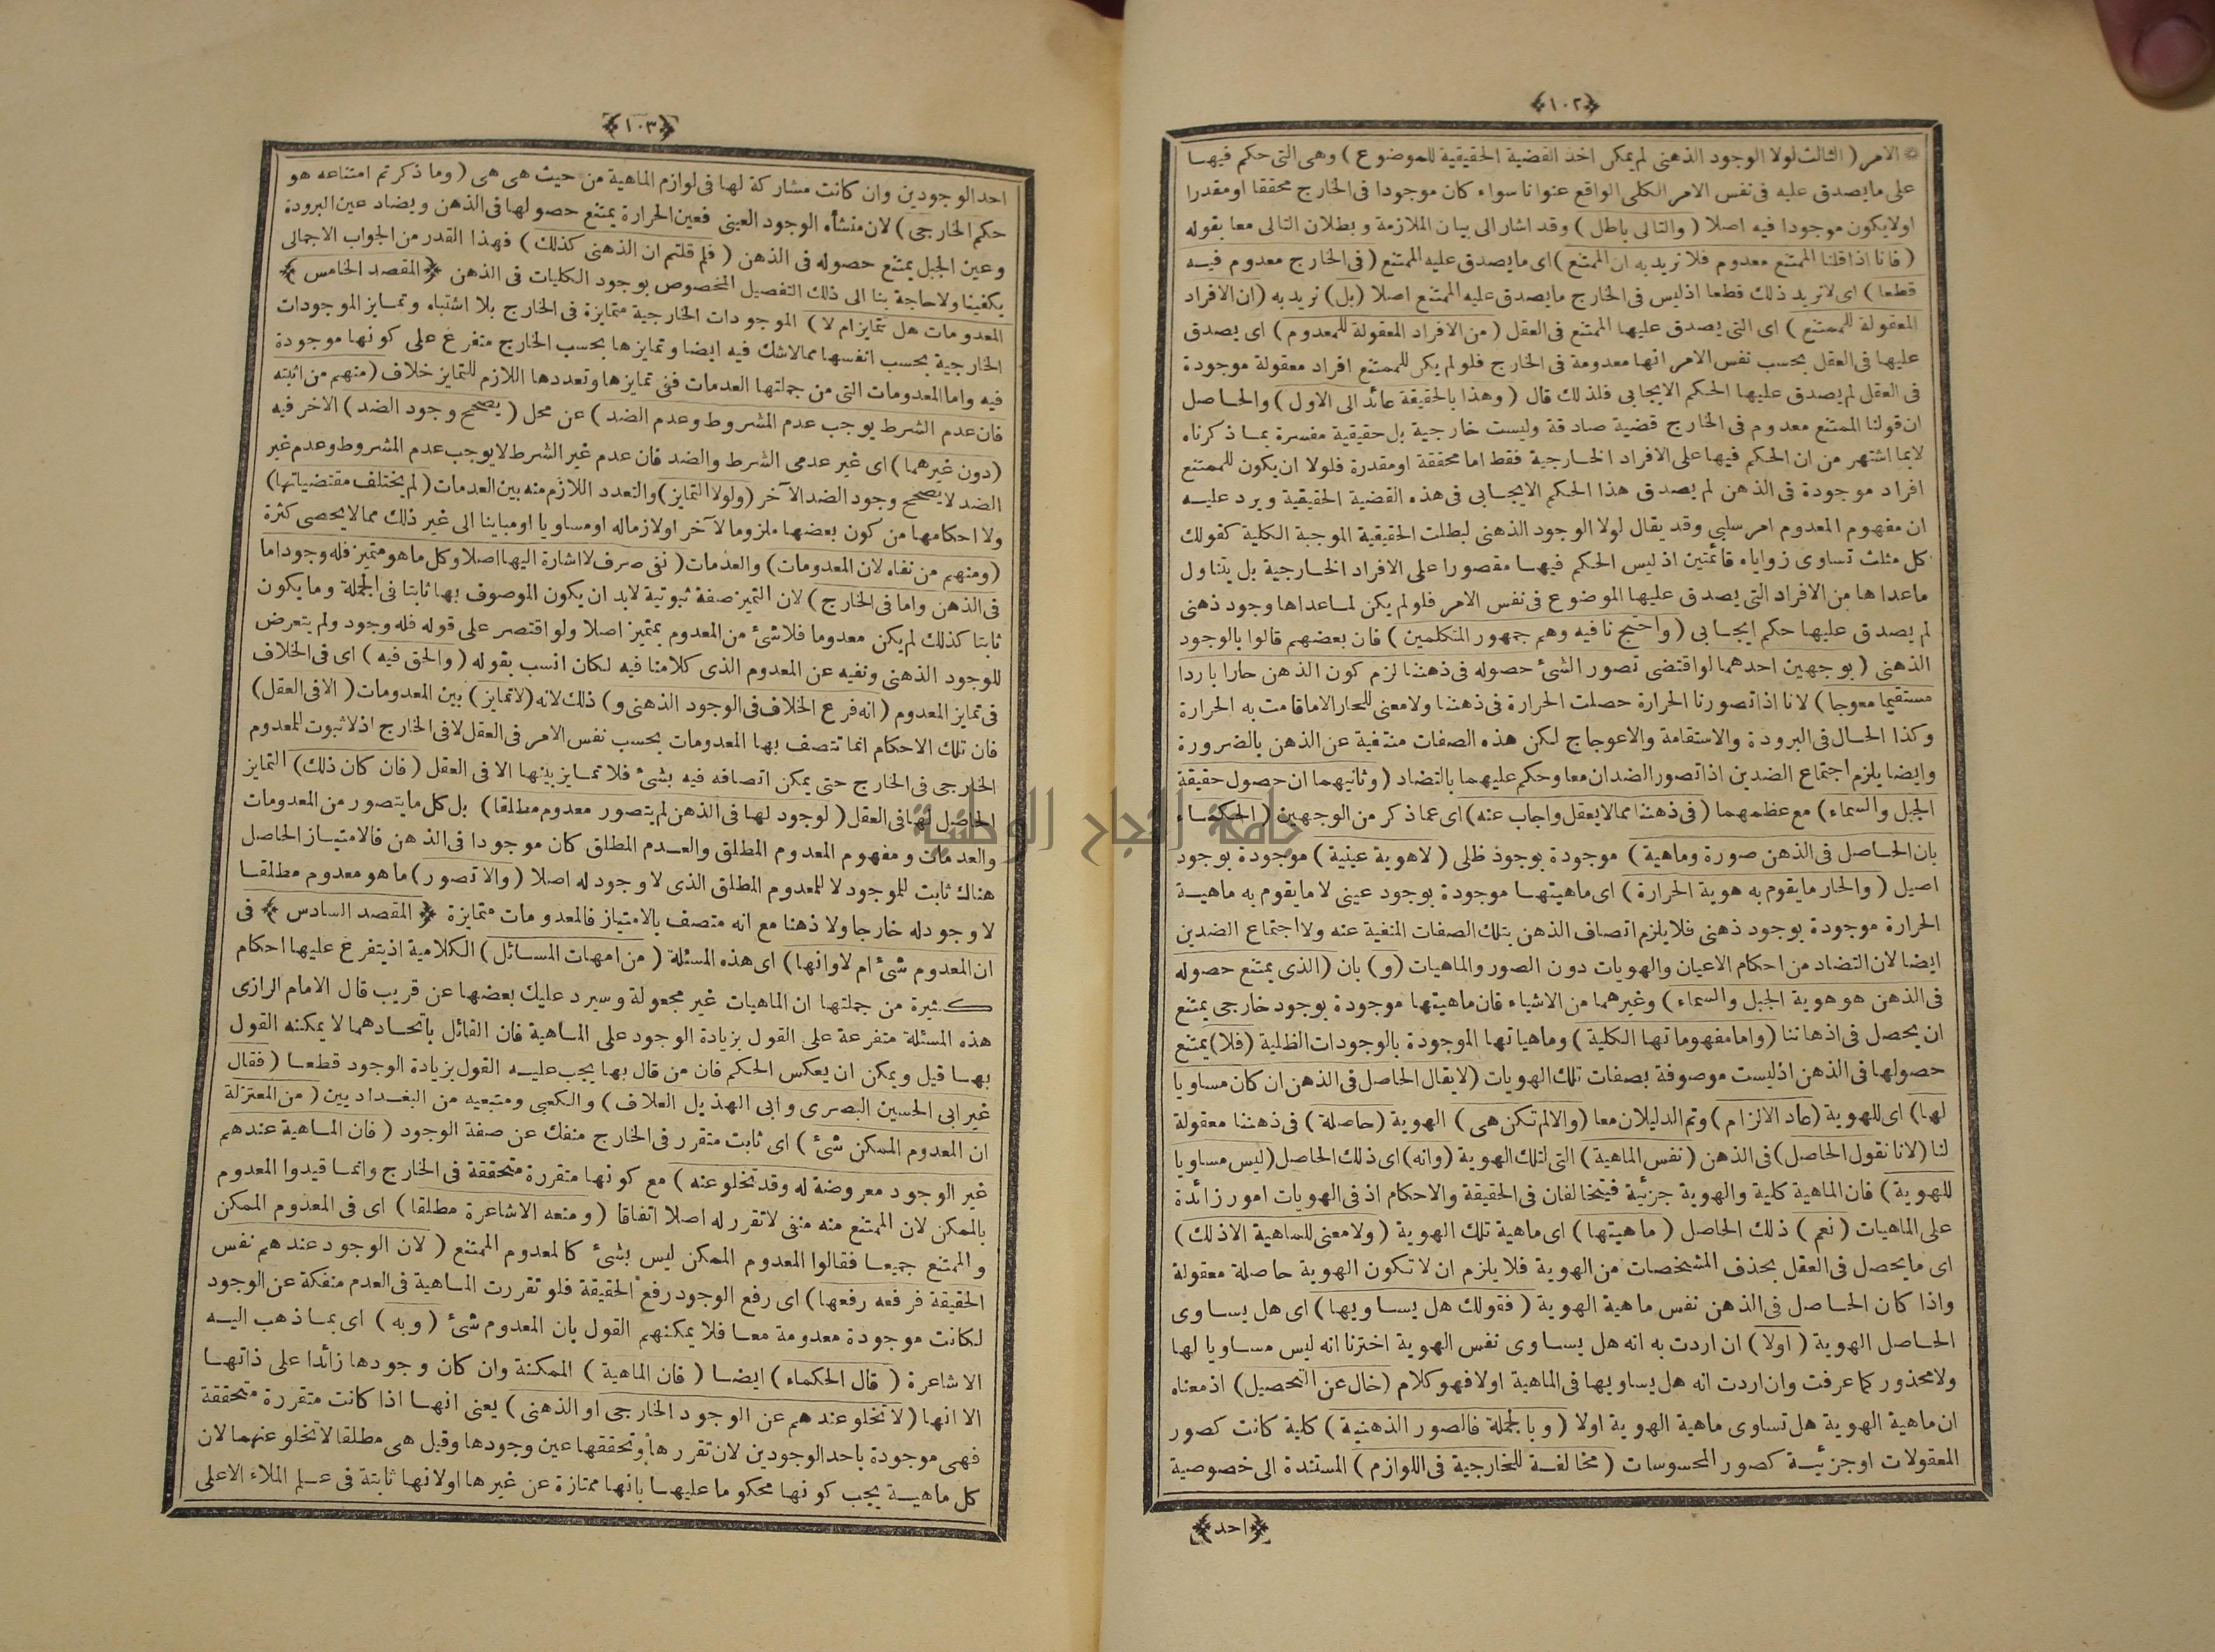 ﴿١٠٢﴾
۞ الامر (الثالث لولا الوجود الذهنى لم يمكن اخذ القضية الحقيقية للموضوع) وهى التى حكم فيها
على ما يصدق عليه فى نفس الامر الكلى الواقع عنوانا سواء كان موجودا فى الخارج محققا او مقدرا
اولا يكون موجودا فيه اصلا (والتالى باطل) وقد اشار الى بيان الملازمة وبطلان التالى معا بقوله
(فانا اذا قلنا الممتنع معدوم فلا نريد به ان الممتنع) اى ما يصدق عليه الممتنع (فى الخارج معدوم فيه
قطعا) اى لا نريد ذلك قطعا اذ ليس فى الخارج ما يصدق عليه الممتنع اصلا (بل) نريد به (ان الافراد
المعقولة للممتنع) اى التى يصدق عليها الممتنع فى العقل (من الافراد المعقولة للمعدوم) اى يصدق
عليها فى العقل بحسب نفس الامر انها معدومة فى الخارج فلو لم يكن للممتنع افراد معقولة موجودة
فى العقل لم يصدق عليها الحكم الايجابى فلذلك قال (وهذا بالحقيقة عائد الى الاول) والحاصل
ان قولنا الممتنع معدوم فى الخارج قضية صادقة وليست خارجية بل حقيقية مفسرة بما ذكرناه
لا بما اشتهر من ان الحكم فيها على الافراد الخارجية فقط اما محققة او مقدرة فلولا ان يكون للممتنع
افراد موجودة فى الذهن لم يصدق هذا الحكم الايجابى فى هذه القضية الحقيقية ويرد عليه
ان مفهوم المعدوم امر سلبى وقد يقال لولا الوجود الذهنى لبطلت الحقيقية الموجبة الكلية كقولك
كل مثلث تساوى زواياه قائمتين اذ ليس الحكم فيها مقصورا على الافراد الخارجية بل يتناول
ماعداها من الافراد التى يصدق عليها الموضوع فى نفس الامر فلو لم يكن لماعداها وجود ذهنى
لم يصدق عليها حكم ايجابى (واحتج نافيه وهم جمهور المتكلمين) فان بعضهم قالوا بالوجود
الذهنى (بوجهين احدهما لو اقتضى تصور الشئ حصوله فى ذهننا لزم كون الذهن حارا باردا
مستقيما معوجا) لانا اذا تصورنا الحرارة حصلت الحرارة فى ذهننا ولا معنى للحار الا ما قامت به الحرارة
وكذا الحال فى البرودة والاستقامة والاعوجاج لكن هذه الصفات منتفية عن الذهن بالضرورة
وايضا يلزم اجتماع الضدين اذا تصور الضدان معا وحكم عليهما بالتضاد (وثانيهما ان حصول حقيقة
الجبل والسماء) مع عظمهما (فى ذهننا مما لا يعقل واجاب عنه) اى عما ذكر من الوجهين (الحكماء
بان الحاصل فى الذهن صورة وماهية) موجودة بوجود ظلى (لا هوية عينية) موجودة بوجود
اصيل (والحار ما يقوم به هوية الحرارة) اى ماهيتها موجودة بوجود عينى لا ما يقوم به ماهية
الحرارة موجودة بوجود ذهنى فلا يلزم اتصاف الذهن بتلك الصفات المنفية عنه ولا اجتماع الضدين
ايضا لان التضاد من احكام الاعيان والهويات دون الصور والماهيات (و) بان (الذى يمتنع حصوله
فى الذهن هو هوية الجبل والسماء) وغيرهما من الاشياء فان ماهيتها موجودة بوجود خارجى يمتنع
ان يحصل فى اذهاننا (واما مفهوماتها الكلية) وماهياتها الموجودة بالوجودات الظلية (فلا) يمتنع
حصولها فى الذهن اذ ليست موصوفة بصفات تلك الهويات (لا يقال الحاصل فى الذهن ان كان مساويا
لها) اى للهوية (عاد الالزام) وتم الدليلان معا (والا لم تكن هى) الهوية (حاصلة) فى ذهننا معقولة
لنا (لانا نقول الحاصل) فى الذهن (نفس الماهية) التى لتلك الهوية (وانه) اى ذلك الحاصل (ليس مساويا
للهوية) فان الماهية كلية والهوية جزئية فيتخالفان فى الحقيقة والاحكام اذ فى الهويات امور زائدة
على الماهيات (نعم) ذلك الحاصل (ماهيتها) اى ماهية تلك الهوية (ولا معنى للماهية الا ذلك)
اى ما يحصل فى العقل بحذف المشخصات من الهوية فلا يلزم ان لا تكون الهوية حاصلة معقولة
واذا كان الحاصل فى الذهن نفس ماهية الهوية (فقولك هل يساويها) اى هل يساوى
الحاصل الهوية (اولا) ان اردت به انه هل يساوى نفس الهوية اخترنا انه ليس مساويا لها
ولا محذور كما عرفت وان اردت انه هل يساويها فى الماهية اولا فهو كلام (خال عن التحصيل) اذ معناه
ان ماهية الهوية هل تساوى ماهية الهوية اولا (وبالجملة فالصور الذهنية) كلية كانت كصور
المعقولات او جزئية كصور المحسوسات (مخالفة للخارجية فى اللوازم) المستندة الى خصوصية
﴿احد﴾
﴿١٠٣﴾
احد الوجودين وان كانت مشاركة لها فى لوازم الماهية من حيث هى هى (وما ذكرتم امتناعه هو
حكم الخارجى) لان منشأه الوجود العينى فعين الحرارة يمتنع حصولها فى الذهن ويضاد عين البرودة
وعين الجبل يمتنع حصوله فى الذهن (فلم قلتم ان الذهنى كذلك) فهذا القدر من الجواب الاجمالى
يكفينا ولا حاجة بنا الى ذلك التفصيل المخصوص بوجود الكليات فى الذهن ﴿المقصد الخامس﴾
المعدومات هل تتمايز ام لا) الموجودات الخارجية متمايزة فى الخارج بلا اشتباه وتمايز الموجودات
الخارجية بحسب انفسها مما لا شك فيه ايضا وتمايزها بحسب الخارج متفرع على كونها موجودة
فيه واما المعدومات التى من جملتها العدمات ففى تمايزها وتعددها اللازم للتمايز خلاف (منهم من اثبته
فان عدم الشرط يوجب عدم المشروط وعدم الضد) عن محل (يصحح وجود الضد) الاخر فيه
(دون غيرهما) اى غير عدمى الشرط والضد فان عدم غير الشرط لا يوجب عدم المشروط وعدم غير
الضد لا يصحح وجود الضد الآخر (ولولا التمايز) والتعدد اللازم منه بين العدمات (لم يختلف مقتضياتها)
ولا احكامها من كون بعضها ملزوما لآخر او لازما له او مساويا او مباينا الى غير ذلك مما لا يحصى كثرة
(ومنهم من نفاه لان المعدومات) والعدمات (نفى صرف لا اشارة اليها اصلا وكل ما هو متميز فله وجود اما
فى الذهن واما فى الخارج) لان التميز صفة ثبوتية لابد ان يكون الموصوف بها ثابتا فى الجملة وما يكون
ثابتا كذلك لم يكن معدوما فلا شئ من المعدوم بمتميز اصلا ولو اقتصر على قوله فله وجود ولم يتعرض
للوجود الذهنى ونفيه عن المعدوم الذى كلامنا فيه لكان انسب بقوله (والحق فيه) اى فى الخلاف
فى تمايز المعدوم (انه فرع الخلاف فى الوجود الذهنى و) ذلك لانه (لا تمايز) بين المعدومات (الا فى العقل)
فان تلك الاحكام انما تتصف بها المعدومات بحسب نفس الامر فى العقل لا فى الخارج اذ لا ثبوت للمعدوم
الخارجى فى الخارج حتى يمكن اتصافه فيه بشئ فلا تمايز بينها الا فى العقل (فان كان ذلك) التمايز
الحاصل لها فى العقل (لوجود لها فى الذهن لم يتصور معدوم مطلقا) بل كل ما يتصور من المعدومات
والعدمات ومفهوم المعدوم المطلق والعدم المطلق كان موجودا فى الذهن فالامتياز الحاصل
هناك ثابت للموجود لا للمعدوم المطلق الذى لا وجود له اصلا (والا تصور) ما هو معدوم مطلقا
لا وجود له خارجا ولا ذهنا مع انه متصف بالامتياز فالمعدومات متمايزة ﴿المقصد السادس﴾ فى
ان المعدوم شئ ام لا وانها) اى هذه المسئلة (من امهات المسائل) الكلامية اذ يتفرع عليها احكام
كثيرة من جملتها ان الماهيات غير مجعولة وسيرد عليك بعضها عن قريب قال الامام الرازى
هذه المسئلة متفرعة على القول بزيادة الوجود على الماهية فان القائل باتحادهما لا يمكنه القول
بها قيل ويمكن ان يعكس الحكم فان من قال بها يجب عليه القول بزيادة الوجود قطعا (فقال
غير ابى الحسين البصرى وابى الهذيل العلاف) والكعبى ومتبعيه من البغداديين (من المعتزلة
ان المعدوم الممكن شئ) اى ثابت متقرر فى الخارج منفك عن صفة الوجود (فان الماهية عندهم
غير الوجود معروضة له وقد تخلو عنه) مع كونها متقررة متحققة فى الخارج وانما قيدوا المعدوم
بالممكن لان الممتنع منه منفى لا تقرر له اصلا اتفاقا (ومنعه الاشاعرة مطلقا) اى فى المعدوم الممكن
والممتنع جميعا فقالوا المعدوم الممكن ليس بشئ كالمعدوم الممتنع (لان الوجود عندهم نفس
الحقيقة فرفعه رفعها) اى رفع الوجود رفع الحقيقة فلو تقررت الماهية فى العدم منفكة عن الوجود
لكانت موجودة معدومة معا فلا يمكنهم القول بان المعدوم شئ (وبه) اى بما ذهب اليه
الاشاعرة (قال الحكماء) ايضا (فان الماهية) الممكنة وان كان وجودها زائدا على ذاتها
الا انها (لا تخلو عندهم عن الوجود الخارجى او الذهنى) يعنى انها اذا كانت متقررة متحققة
فهى موجودة باحد الوجودين لان تقررها وتحققها عين وجودها وقيل هى مطلقا لا تخلو عنهما لان
كل ماهية يجب كونها محكوما عليها بانها ممتازة عن غيرها او لانها ثابتة فى علم الملاء الاعلى
جامعة النجاح الوطنية